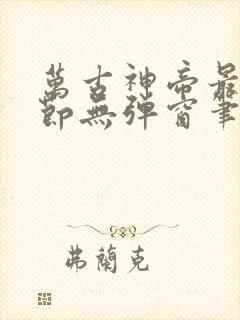 萬古神帝最
節無彈窗筆
弗蘭克